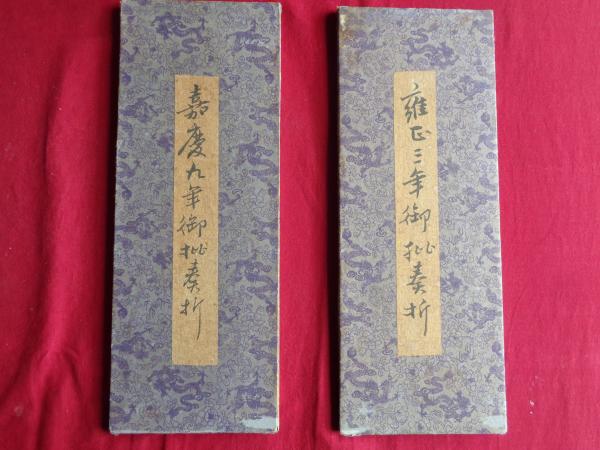 嘉慶九年御批奏折
雍正三年御批奏折